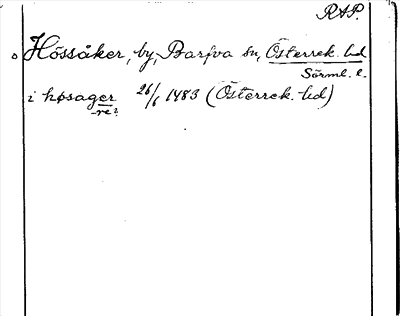 RAP.
Hössåker, by, Barfva sn, Österrek. hd
Sörml. l.
i høsager 26/6 1483 (Österrek.-hd)
-re?